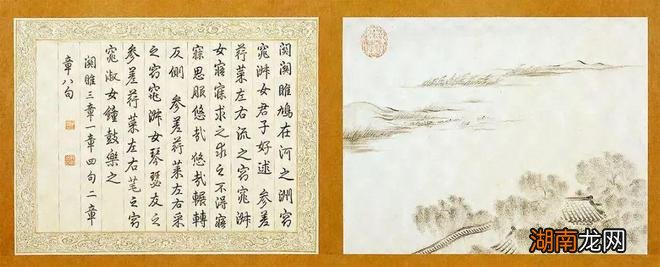 關關雎鳩在河之洲窈
窕淑女君子好逑 參差
荇菜左右流之窈窕淑
女寤寐求之求之不得寤
寐思服悠哉悠哉輾轉
反側 參差荇菜左右采
之窈窕淑女琴瑟友之
參差荇菜左右芼之窈
窕淑女鐘鼓樂之
關雎三章一章四句二章
章八句
湖南龙网